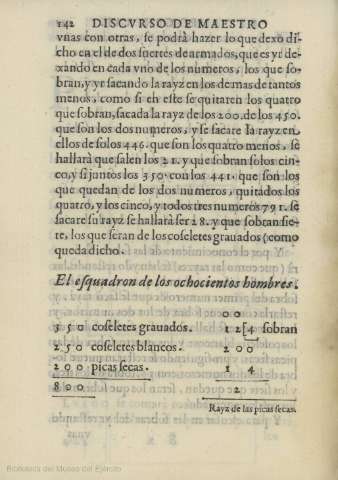 142 DISCVRSO DE MAESTRO
vnas con otras, se podrà hazer lo que dexo di-
cho en el de dos suertes de armados, que es yr de-
xando en cada vno de los numeros, los que so-
bran, y yr sacando la rayz en los demas de tantos
menos, como si en este se quitaren los quatro
que sobran, sacada la rayz de los 200. de los 450.
que son los dos numeros, y se sacare la rayz en
ellos de solos 446. que son los quatro menos, se
hallarà que salen los 21. y que sobran solos cin-
co, y si juntos los 350. con los 441. que son los
que quedan de los dos numeros, quitados los
quatro, y los cinco, y todos tres numeros 791. se
sacare su rayz se hallarà ser 28. y que sobran sie-
te, los que seran de los coseletes grauados (como
queda dicho.
El esquadron de los ochocientos hombres.
00
350 coseletes grauados. 12[4 sobran
250 coseletes blancos. 200
200 picas secas. 14
800 2
Rayz de las picas secas.
vnas
Biblioteca del Museo del Ejército